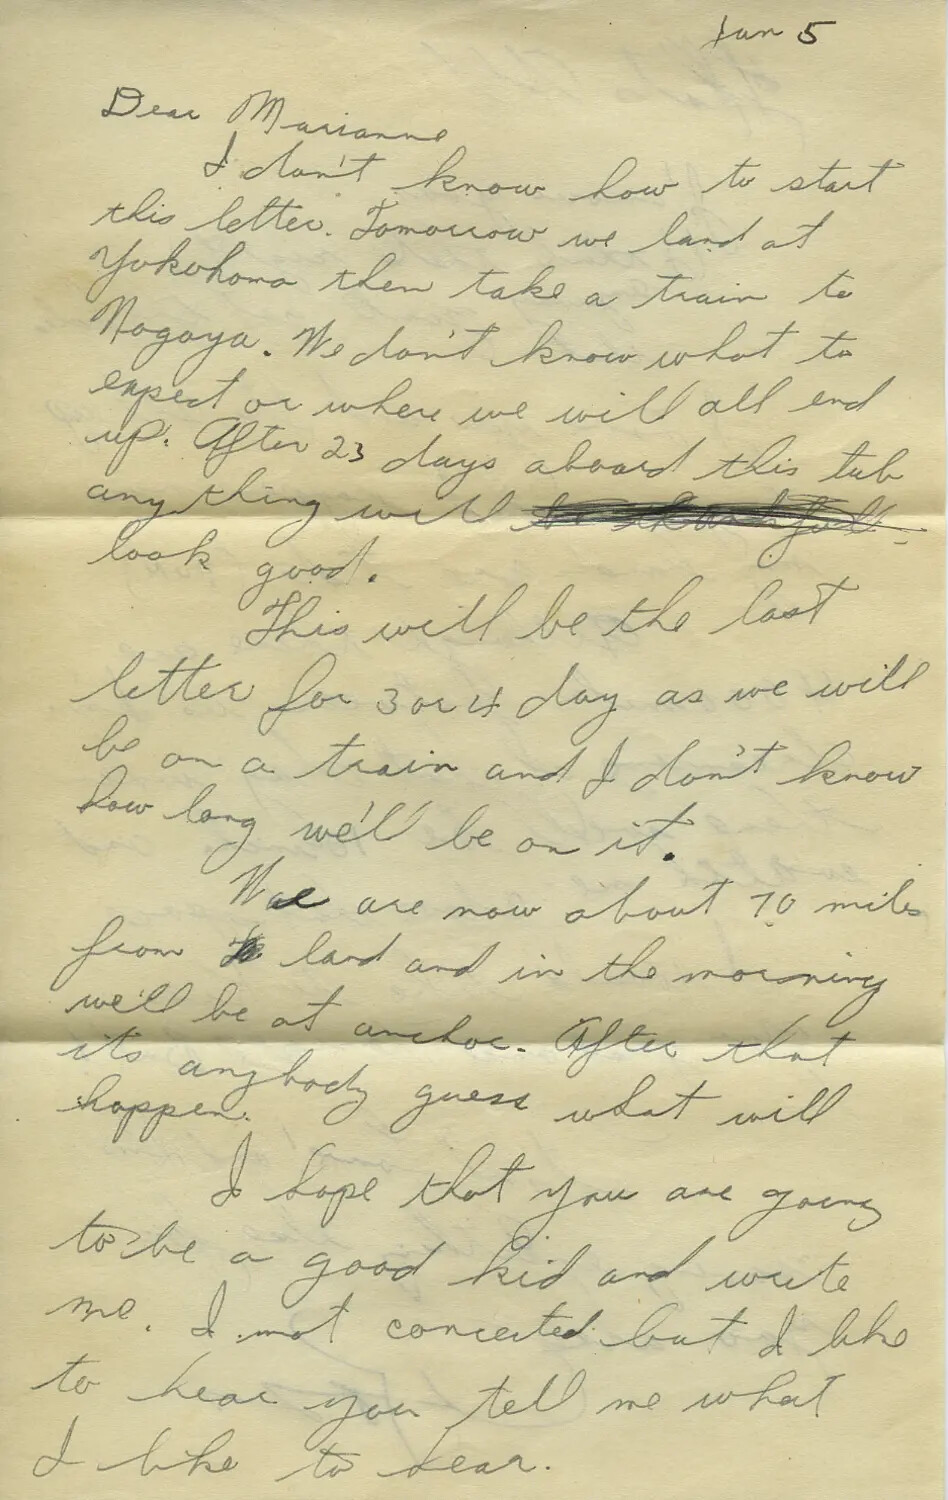 Jan 5
Dear Marianne
I don't know how to start
this letter. Tomorrow we land at
Yokohoma then take a train to
Nagoya. We don't know what to
expect or where we will all end
up. After 23 days aboard this tub
anything will
look good.
This will be the last
letter for 3 or 4 day as we will
be on a train and I don't know
how long we'll be on it.
We are now about 70 miles
from land and in the morning
we'll be at anchor. After that
its anybody guess what will
happen.
I hope that you are going
to be a good kid and write
me. I not conceited but I like
to hear you tell me what
I like to hear.